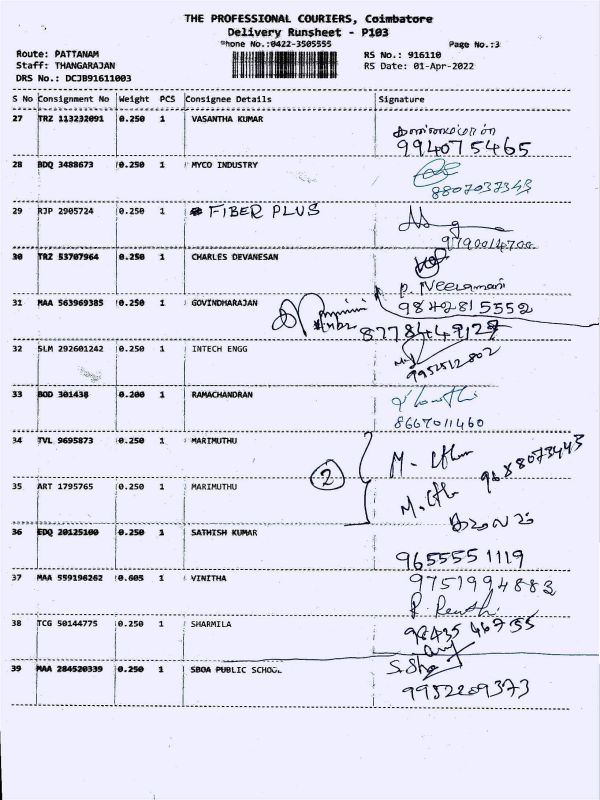 THE PROFESSIONAL COURIERS, Coimbatore
Delivery Runsheet - P103
Phone No.:0422-3505555
Page No.:3
Route: PATTANAM
RS No.: 916110
Staff: THANGARAJAN
RS Date: 01-Apr-2022
DRS No.: DCJB91611003
S No Consignment No Weight PCS Consignee Details Signature
27 TRZ 113232091 0.250 1 VASANTHA KUMAR
994075465
28 BDQ 3488673 0.250 1 MYCO INDUSTRY
8807037343
29 RJP 2905724 0.250 1 FIBER PLUS
9790014700
30 TRZ 53707964 0.250 1 CHARLES DEVANESAN
P. Neelamani
31 MAA 563969385 0.250 1 GOVINDHARAJAN 9842815552
8778449127
32 SLM 292601242 0.250 1 INTECH ENGG
9952512802
33 BOD 301438 0.200 1 RAMACHANDRAN
8667011460
34 TVL 9695873 0.250 1 MARIMUTHU
9688073443
2
35 ART 1795765 0.250 1 MARIMUTHU
36 EDQ 20125100 0.250 1 SATHISH KUMAR
9655551119
37 MAA 559196262 0.605 1 VINITHA 9751994883
38 TCG 50144775 0.250 1 SHARMILA
39 MAA 284520339 0.250 1 SBOA PUBLIC SCHOOL
9952209373